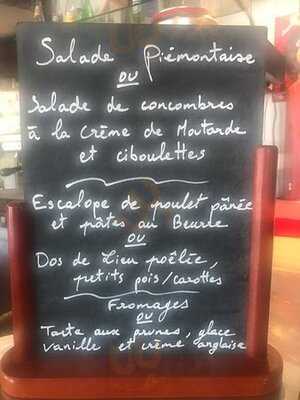 Salade Piémontaise
ou
Salade de concombres
à la Crème de Moutarde
et ciboulettes
Escalope de poulet pânée
et pâtes au Beurre
ou
Dos de Lieu poêlée,
petits pois/carottes
Fromages
ou
Tarte aux prunes, glace
vanille et crème anglaise